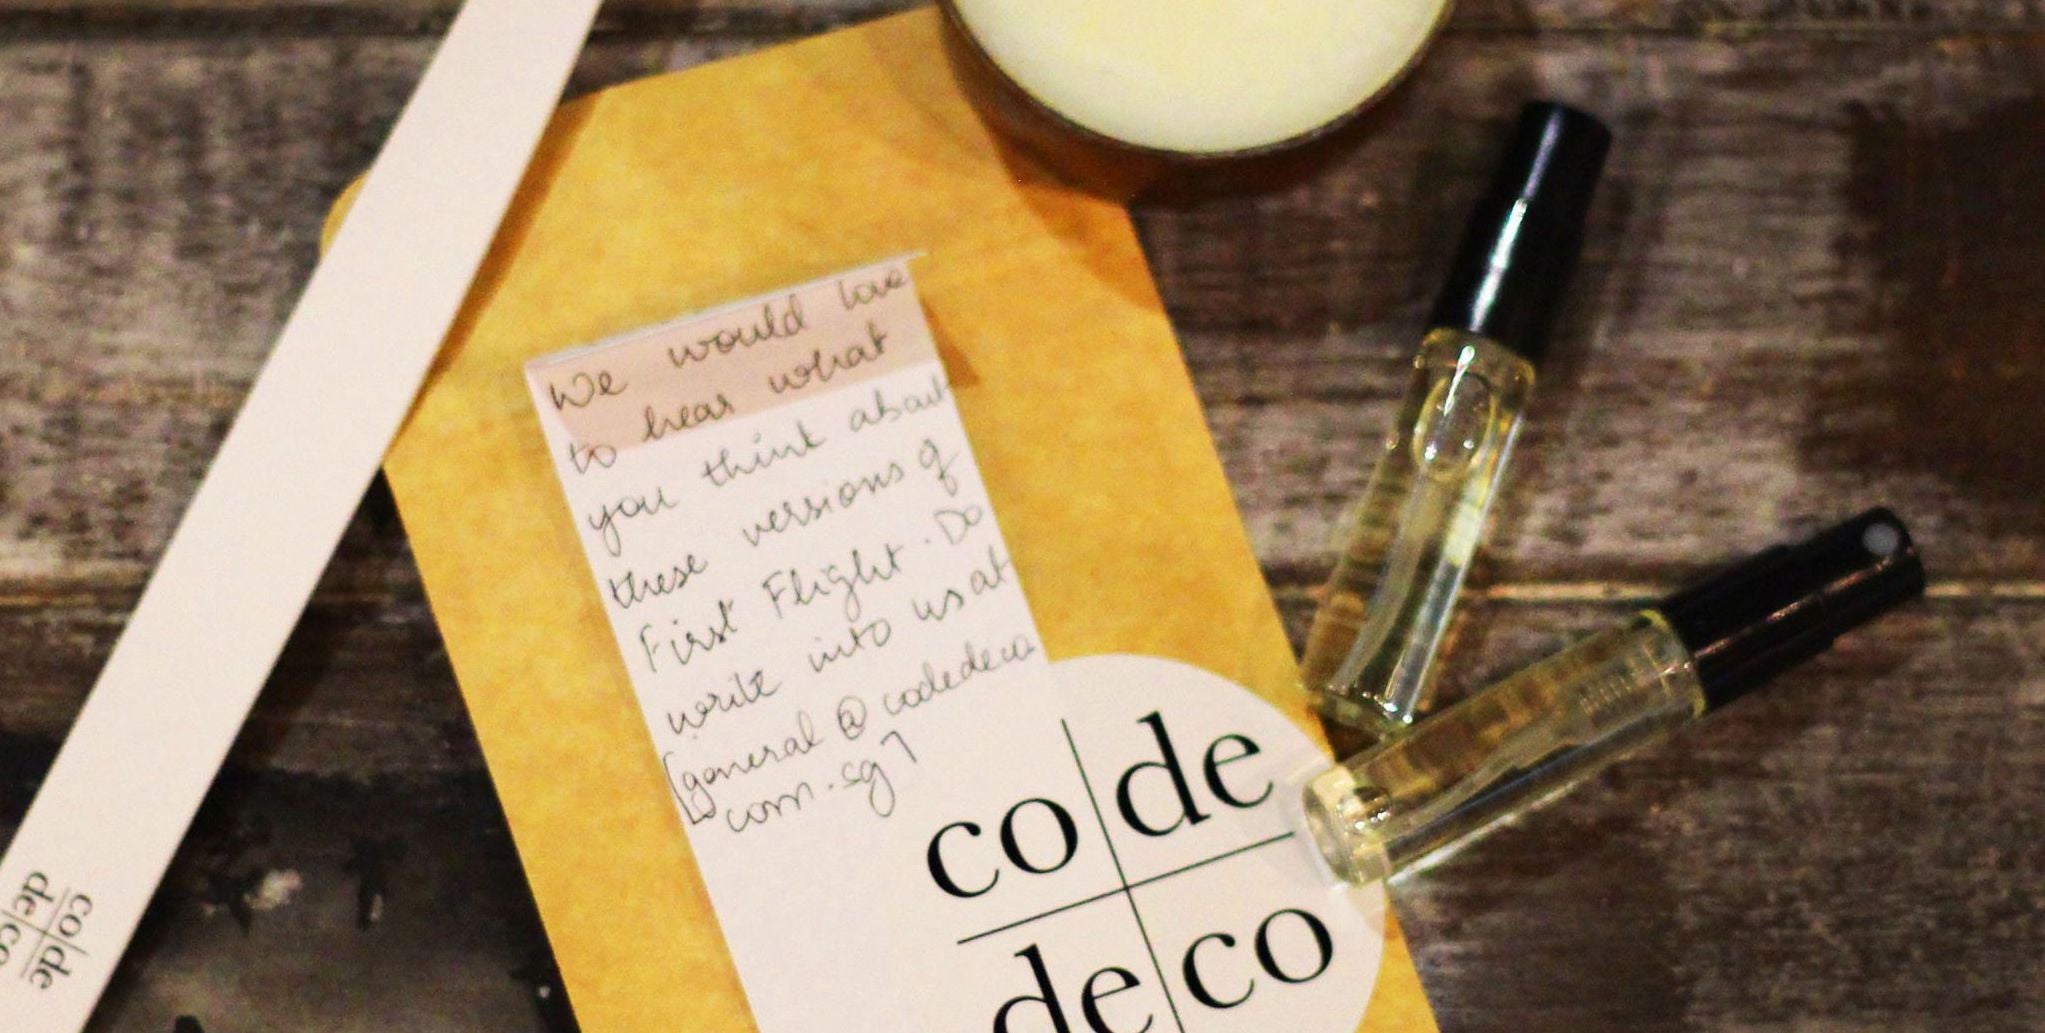 We would love
to hear what
you think about
these versions of
First Flight. Do
write into us at
[general@codedeco.
com.sg]
co de
de co
co de
de co